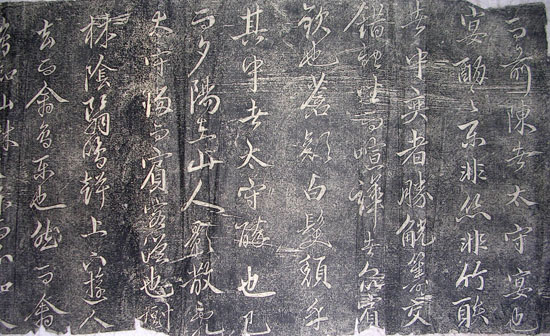 而前陳者太守宴也
宴酣之樂非絲非竹射
者中奕者勝觥籌交
錯起坐而喧譁者眾賓
歡也蒼顏白髮頹乎
其中者太守醉也已
而夕陽在山人影散亂
太守歸而賓客從也樹
林陰翳鳴聲上下遊人
去而禽鳥樂也然而禽
鳥知山林之樂而不知人